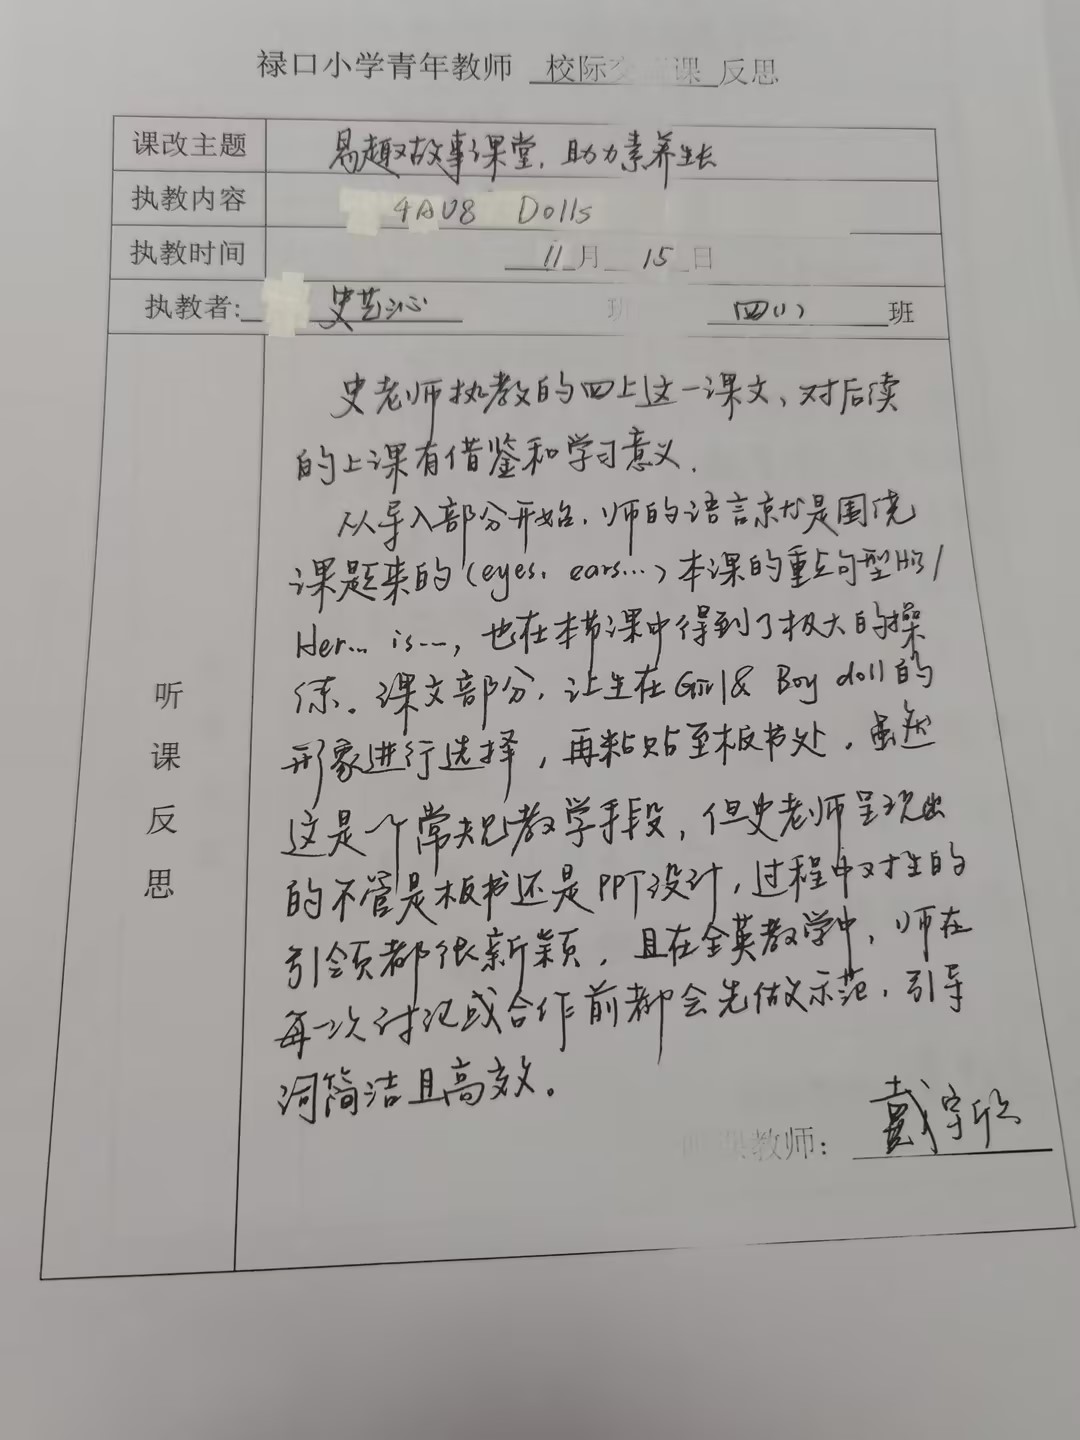 禄口小学青年教师 校际交流课 反思
课改主题 易趣故事课堂，助力素养生长
执教内容 4AU8 Dolls
执教时间 11月 15日
执教者: 史艺沁 班 四(1) 班
听课反思
史老师执教的四上这一课文、对后续
的上课有借鉴和学习意义.
从导入部分开始，师的语言就是围绕
课题来的(eyes, ears...)本课的重点句型His/
Her... is..., 也在本节课中得到了极大的操
练。课文部分，让生在Girl& Boy doll的
形象进行选择，再粘贴至板书处，虽然
这是个常规教学手段，但史老师呈现出
的不管是板书还是PPT设计，过程中对生的
引领都很新颖，且在全英教学中，师在
每一次讨论或合作前都会先做示范，引导
词简洁且高效。
听课教师: 戴宇欣